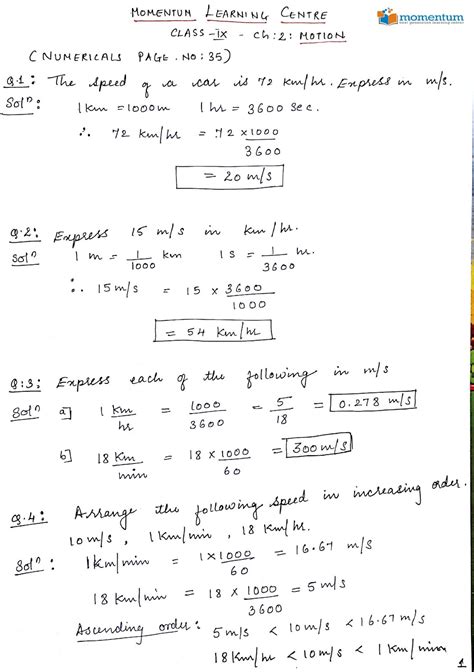 MOMENTUM LEARNING CENTRE
momentum
CLASS-IX - Ch:2: MOTION
(NUMERICALS PAGE.NO:35)
Q.1: The speed of a car is 72 km/hr. Express in m/s.
Solⁿ: 1 km = 1000m 1 hr = 3600 sec.
∴ 72 km/hr = 72 × 1000 / 3600
= 20 m/s
Q.2: Express 15 m/s in km/hr.
Solⁿ 1 m = 1/1000 km 1 s = 1/3600 hr.
∴ 15 m/s = 15 × 3600/1000
= 54 km/hr
Q:3: Express each of the following in m/s
Solⁿ a] 1 km/hr = 1000/3600 = 5/18 = 0.278 m/s
b] 18 km/min = 18 × 1000/60 = 300 m/s
Q.4: Arrange the following speed in increasing order.
10 m/s, 1 km/min, 18 km/hr.
Solⁿ: 1 km/min = 1×1000/60 = 16.67 m/s
18 km/min = 18 × 1000/3600 = 5 m/s
Ascending order: 5 m/s < 10 m/s < 16.67 m/s
18 km/hr < 10 m/s < 1 km/min